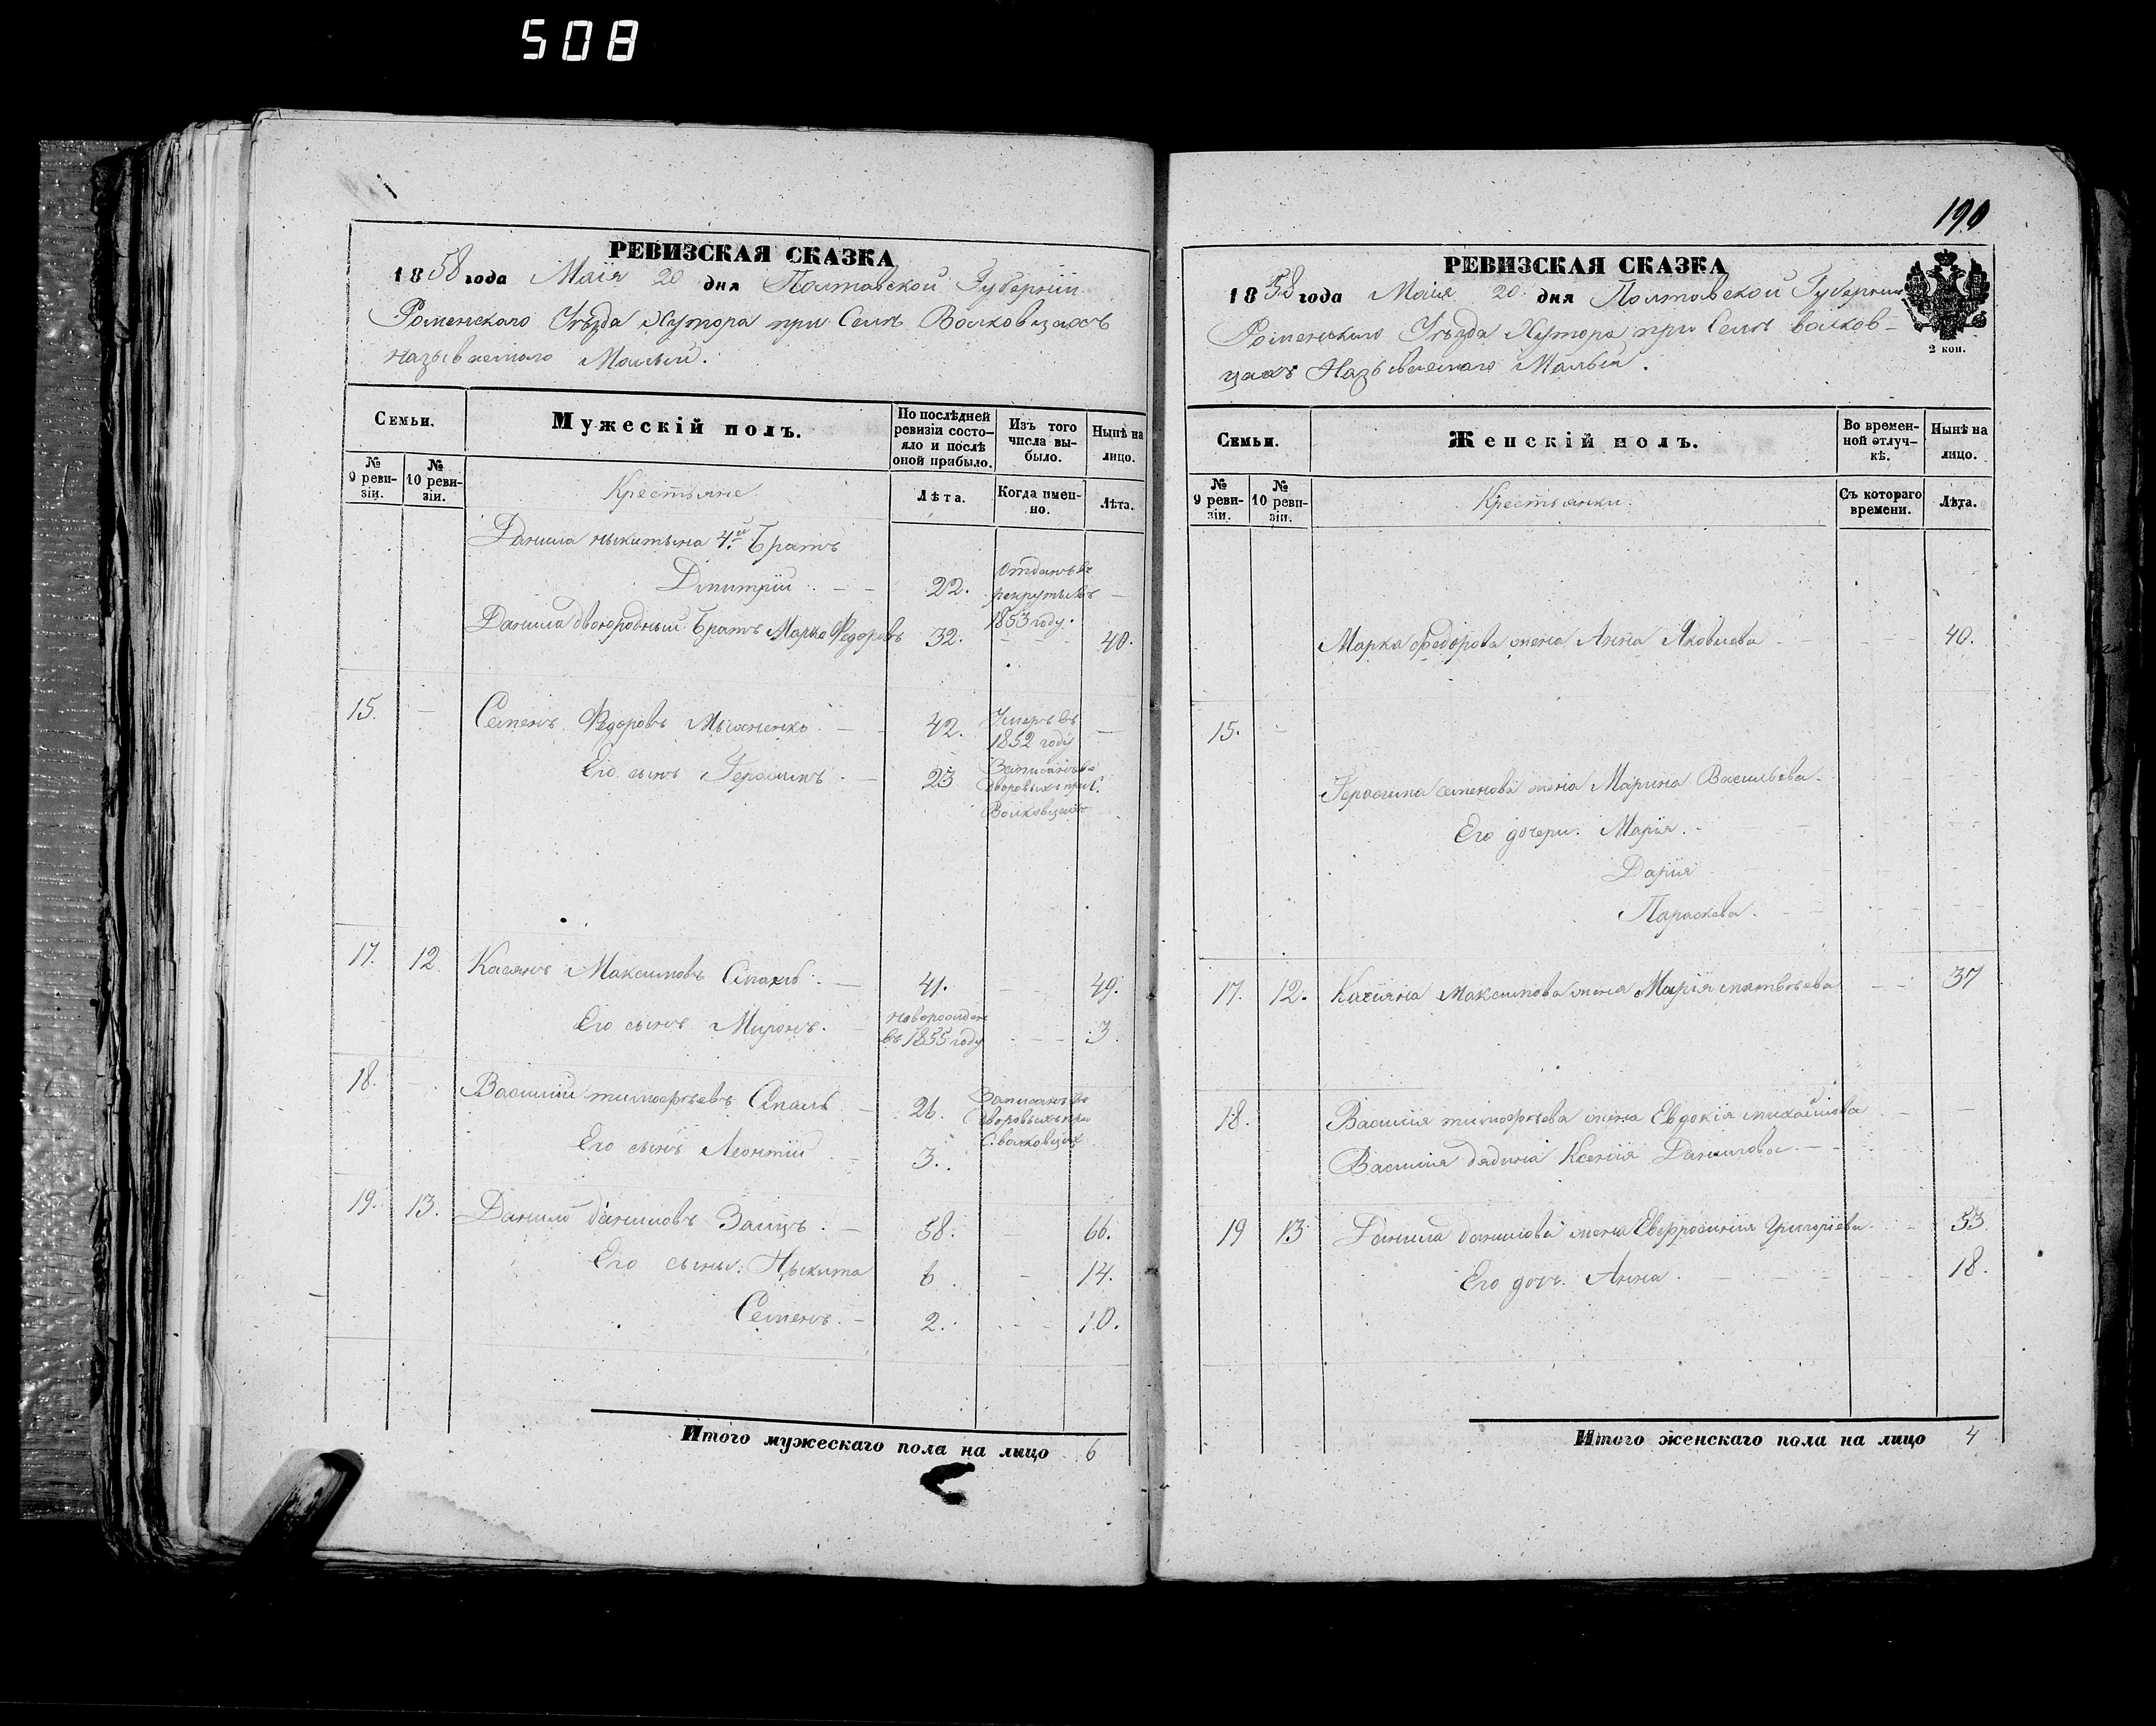 508
РЕВИЗСКАЯ СКАЗКА
1858 года Маія 20 дня Полтавской Губерніи
Роменскаго Уѣзда Хутора при Селѣ Волковцахъ
называемаго Малый.
Семьи.
Мужескій полъ.
По послѣдней ревизіи состо-яло и послѣ оной прибыло.
Изъ того числа вы-было.
Нынѣ на лицо.
№ 9 реви-зіи.
№ 10 реви-зіи.
Крестьяне
Лѣта.
Когда имен-но.
Лѣта.
Данила Никитына 4й Братъ
Дмитрій 22. Отданъ въ рекруты въ 1853 году. —
Данила двоюродный Братъ Марко Федоровъ 32. — 40.
15. — Семенъ Федоровъ 42. Умеръ въ 1852 году —
Его сынъ Герасимъ. 23 Записанъ въ дворовых при С. Волковцахъ
17. 12. Касянъ Максимовъ 41. — 49.
Его сынъ Миронъ. новорожден въ 1855 году — 3.
18. — Василий тимофѣевъ 26. Записанъ въ дворовыхъ при С. волковцах
Его сынъ Леонтій 3.
19. 13. Данило даниловъ Заицъ. 58. — 66.
Его сыны: Нькита 6. — 14.
Семенъ. 2. — 10.
Итого мужескаго пола на лицо 6
190
РЕВИЗСКАЯ СКАЗКА
1858 года Маія 20 дня Полтавской Губерніи
Роменскаго Уѣзда Хутора при Селѣ волков-
цахъ Называемаго Малый.
2 коп.
Семьи.
Женскій полъ.
Во времен-ной отлуч-кѣ.
Нынѣ на лицо.
№ 9 реви-зіи.
№ 10 реви-зіи.
Крестьянки.
Съ котораго времени.
Лѣта.
Марка Федорова жена Анна Яковлева — 40.
15. —
Герасима семенова жена Марина Васильева.
Его дочери: Марія.
Дарія
Параскева.
17. 12. Касіяна Максимова жена Марія матвѣева — 37
18. Василія тимофѣева жена Евдокія михайлова —
Василія дядина Ксенія Данилова. —
19 13 Данила данилова жена Евфросинія Григоріева. — 53
Его дочь: Анна. — 18.
Итого женскаго пола на лицо 4